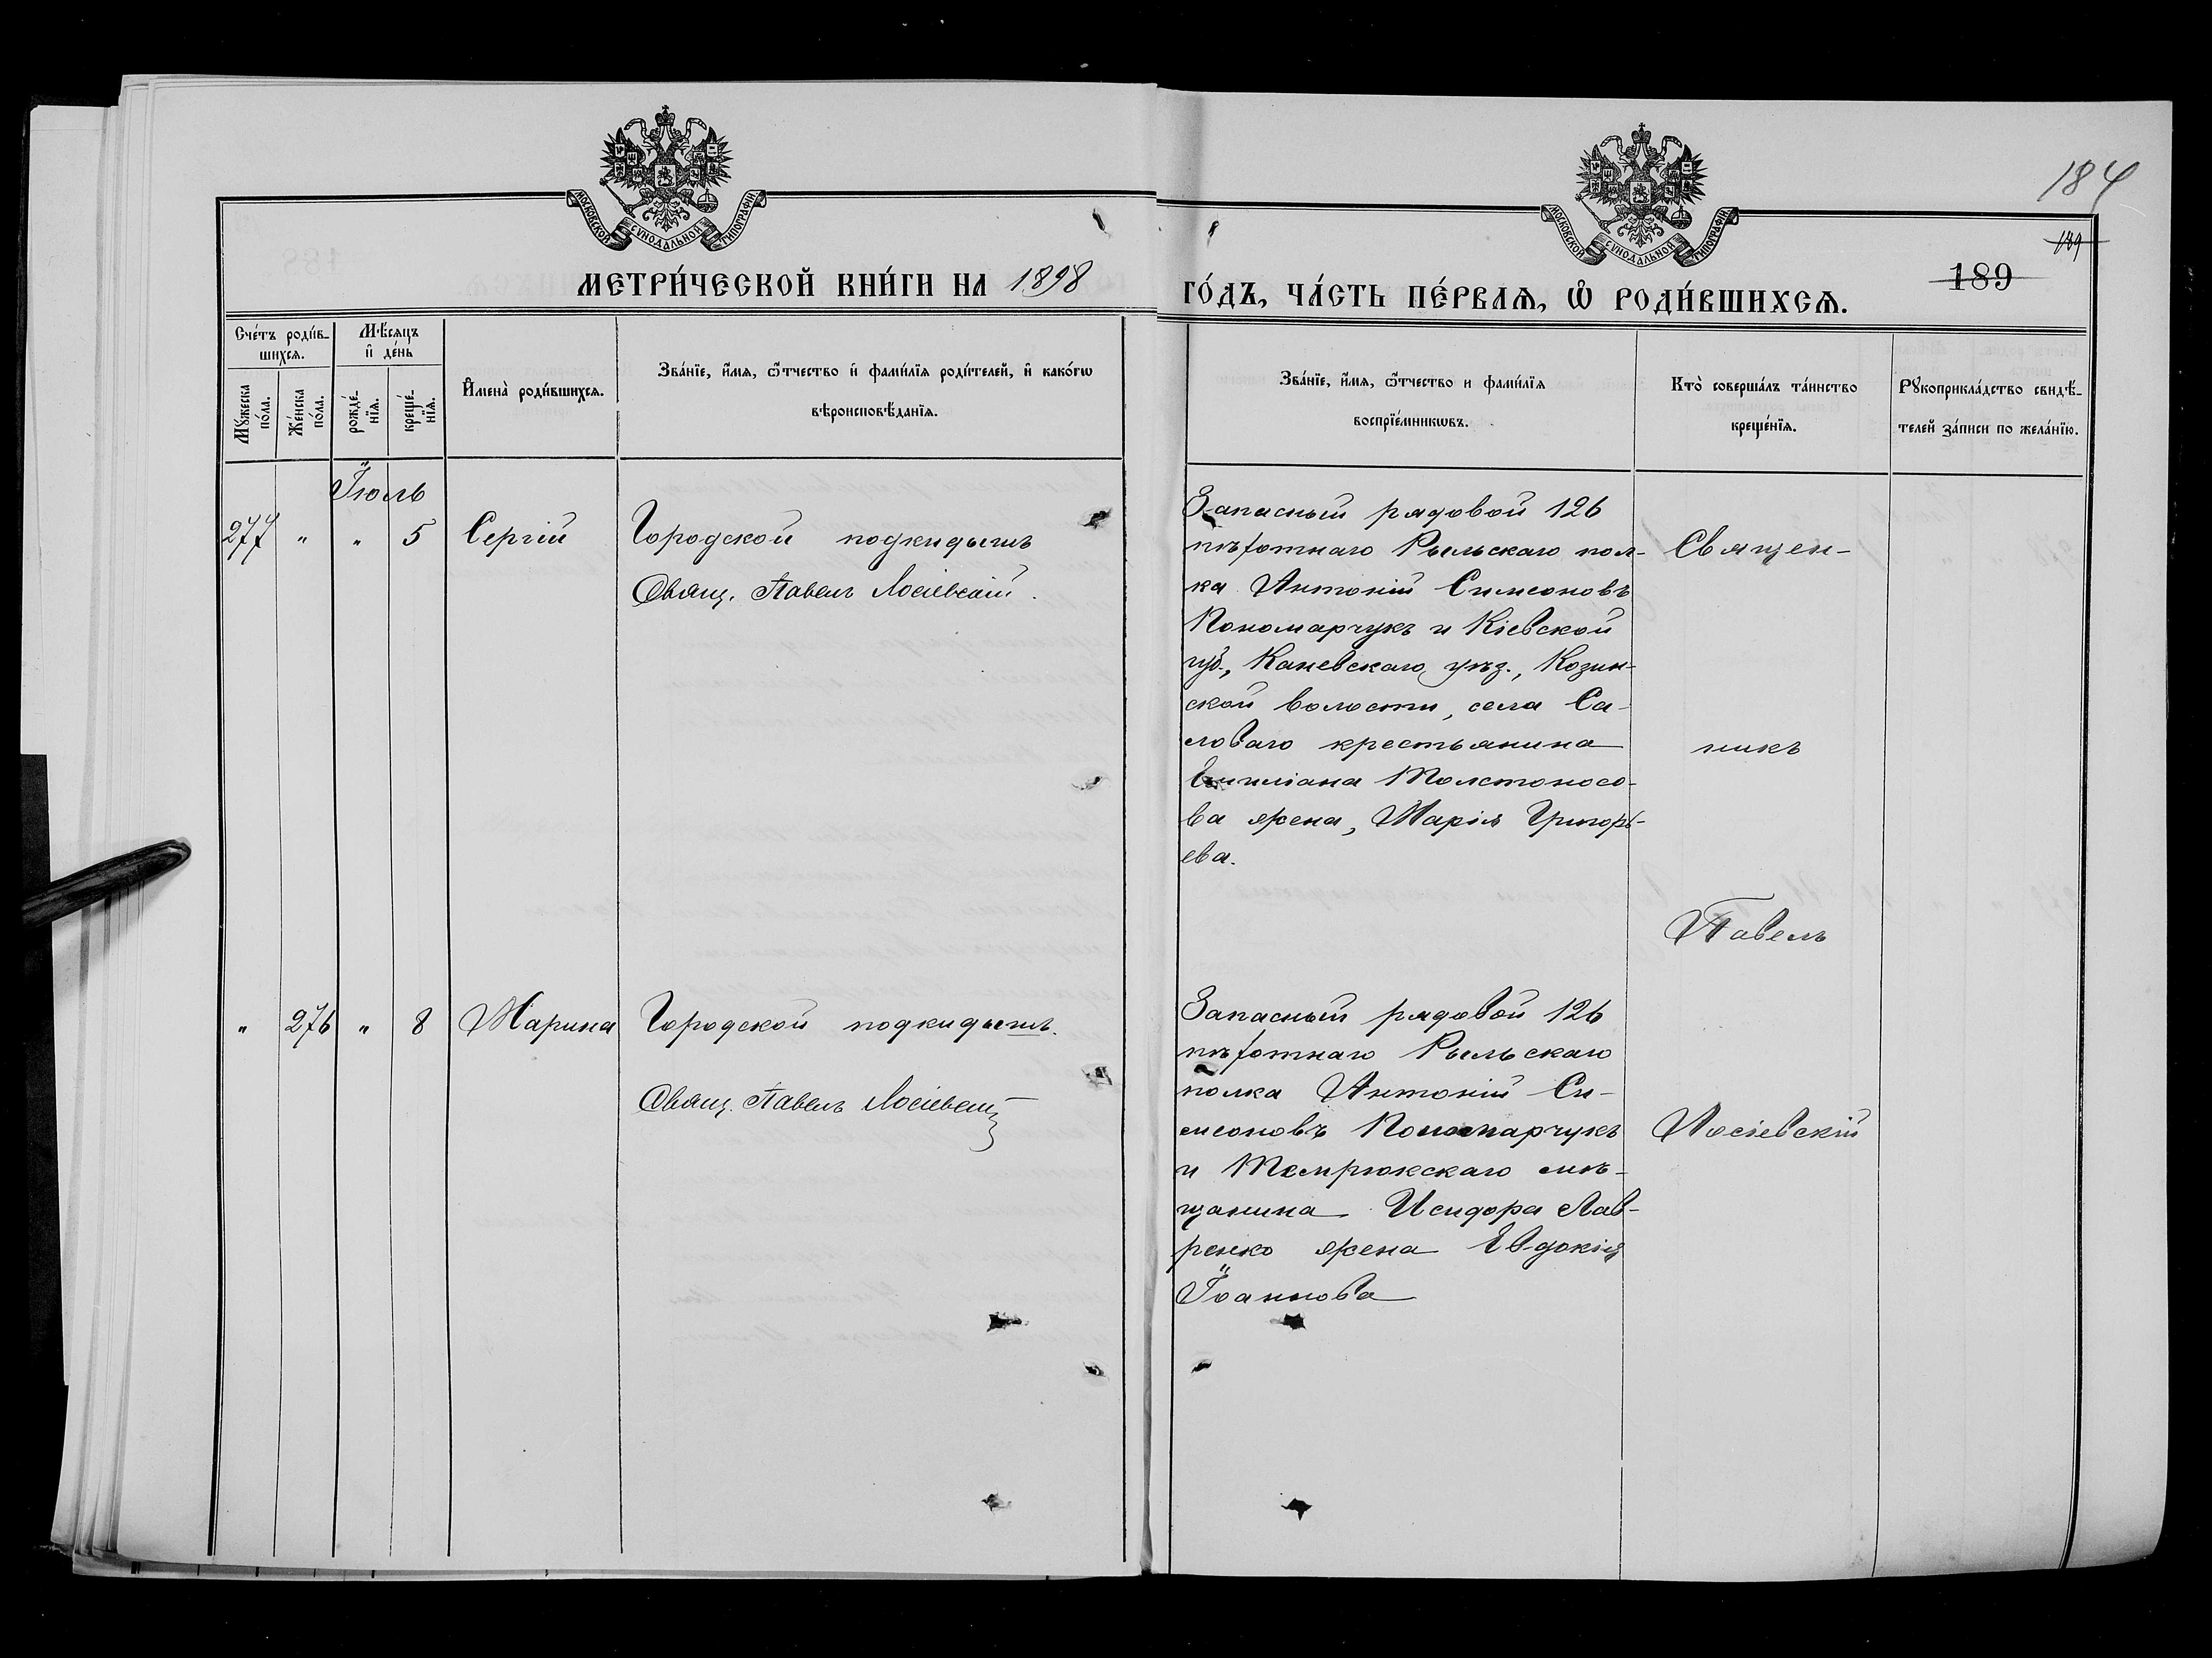 МОСКОВСКОЙ СУНОДАЛЬНОЙ ТИПОГРАФІИ
МОСКОВСКОЙ СУНОДАЛЬНОЙ ТИПОГРАФІИ
184
189
189
МЕТРИ́ЧЕСКОЙ КНИ́ГИ НА 1898
ГО́ДЪ, ЧА́СТЬ ПЕ́РВАѦ, Ѡ РОДИ́ВШИХСѦ.
Сче́тъ роди́в-
шихсѧ.
Мѣ́сѧцъ
и҆ де́нь
Мꙋ́жеска
по́ла.
Же́нска
по́ла.
рожде́-
нїѧ.
креще́-
нїѧ.
И҆мена̀ роди́вшихсѧ.
Зва́нїе, и҆́мѧ, ѻ҆́тчество и҆ фами́лїѧ роди́телей, и҆ како́гѡ
вѣроисповѣ́данїѧ.
Зва́нїе, и҆́мѧ, ѻ҆́тчество и фами́лїѧ
воспрїе́мникѡвъ.
Кто̀ соверша́лъ та́инство
креще́нїѧ.
Рꙋкоприкла́дство свидѣ́-
телей за́писи по жела́нїю.
Іюль
277 " " 5 Сергій
Городской подкидышъ
Свящ. Павелъ Лосіевскій.
Запасный рядовой 126
пѣхотнаго Рыльскаго пол-
ка Антоній Симеоновъ
Пономарчукъ и Кіевской
губ., Каневскаго уѣз., Козин-
ской волости, села Са-
ловаго крестьянина
Емиліана Толстоносо-
ва жена, Марія Григорь-
ева.
Священ-
никъ
Павелъ
Лосіевскій
" 276 " 8 Марина
Городской подкидышъ.
Свящ. Павелъ Лосіевскій
Запасный рядовой 126
пѣхотнаго Рыльскаго
полка Антоній Си-
меоновъ Пономарчукъ
и Темрюкскаго мѣ-
щанина Исидора Лав-
ренко жена Евдокія
Іоаннова